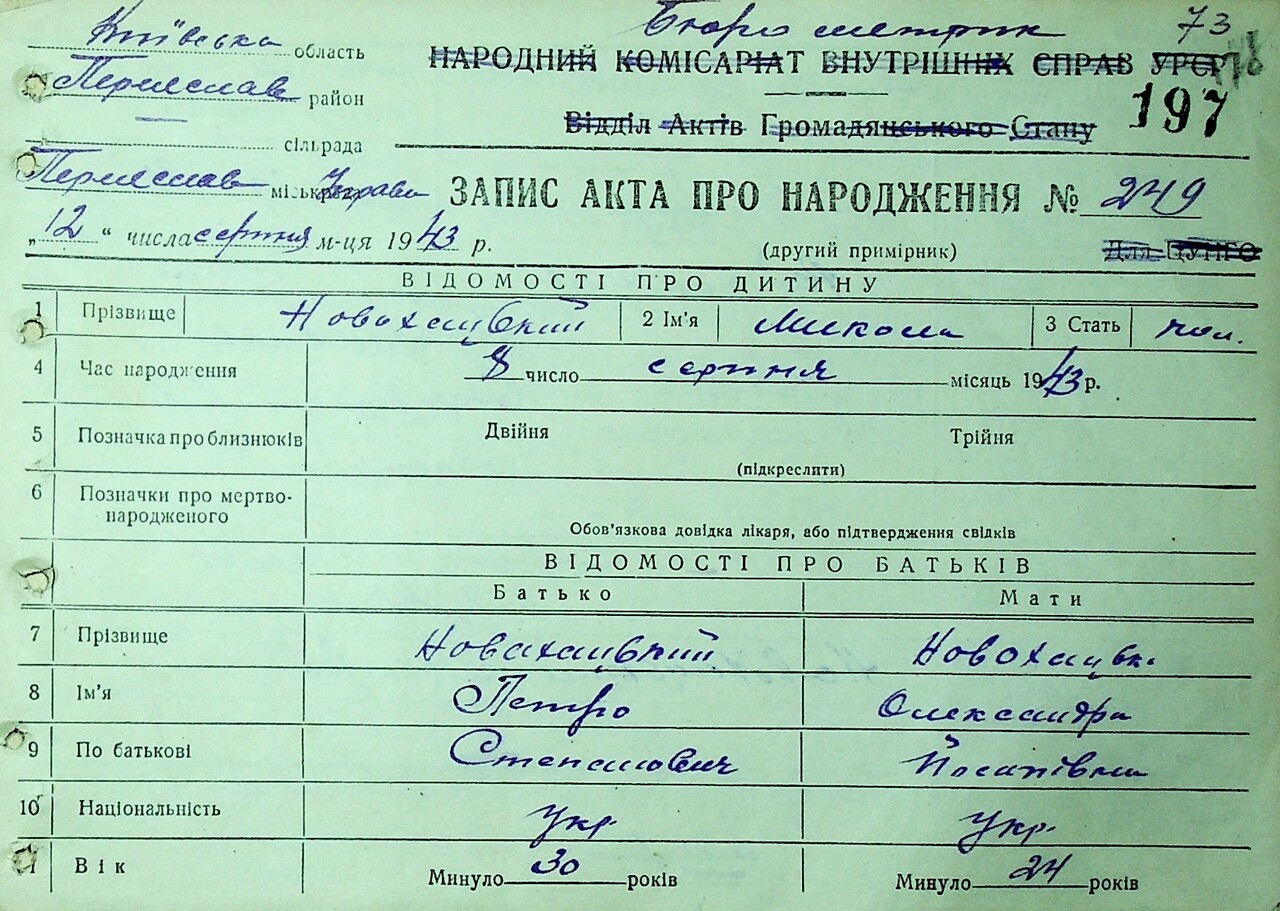 Київська область
Бюро метрик
73
НАРОДНИЙ КОМІСАРІАТ ВНУТРІШНІХ СПРАВ УРСР
Переяслав район
197
Відділ Актів Громадянського Стану
сільрада
Переяслав міськрада Управа
ЗАПИС АКТА ПРО НАРОДЖЕННЯ № 249
„12“ числа серпня м-ця 1943 р.
(другий примірник)
Для ЦУНГО
ВІДОМОСТІ ПРО ДИТИНУ
1 Прізвище Новохацький 2 Ім'я Микола 3 Стать чол.
4 Час народження 8 число серпня місяць 1943 р.
5 Позначка про близнюків Двійня Трійня
(підкреслити)
6 Позначки про мертво-
народженого
Обов'язкова довідка лікаря, або підтвердження свідків
ВІДОМОСТІ ПРО БАТЬКІВ
Батько Мати
7 Прізвище Новахацький Новохацьк.
8 Ім'я Петро Олександра
9 По батькові Степанович Йосипівна
10 Національність Укр. Укр.
Вік Минуло 30 років Минуло 24 років